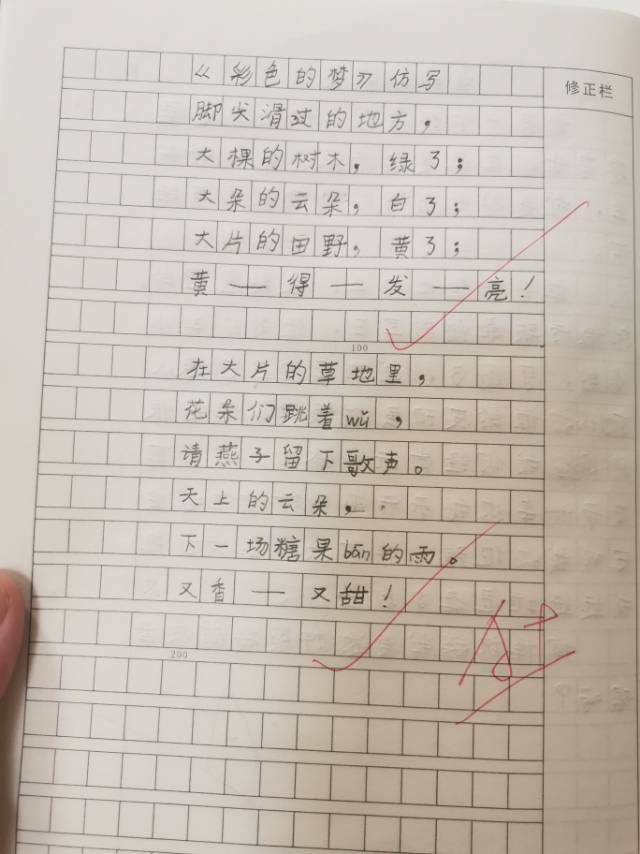 《彩色的梦》仿写
修正栏
脚尖滑过的地方，
大棵的树木，绿了；
大朵的云朵，白了；
大片的田野，黄了；
黄—得—发—亮！
100
在大片的草地里，
花朵们跳着wǔ，
请燕子留下歌声。
天上的云朵，
下一场糖果bān的雨。
又香—又甜！
200